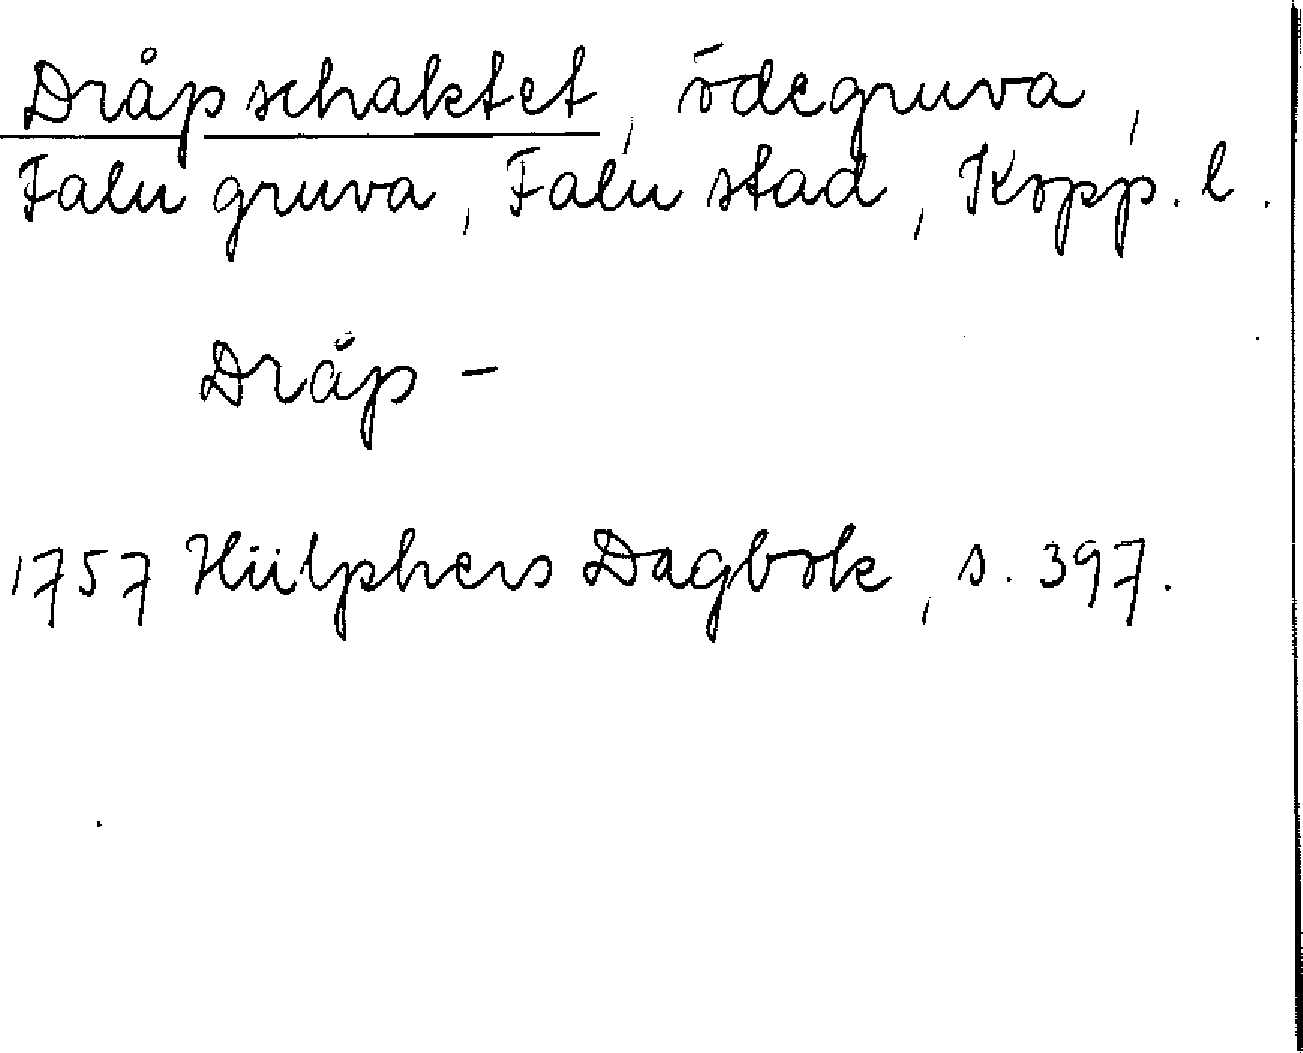 Dråpschaktet, ödegruva,
Falu gruva, Falu stad, Kopp. l.
Dråp -
1757 Hülphers Dagbok, s. 397.